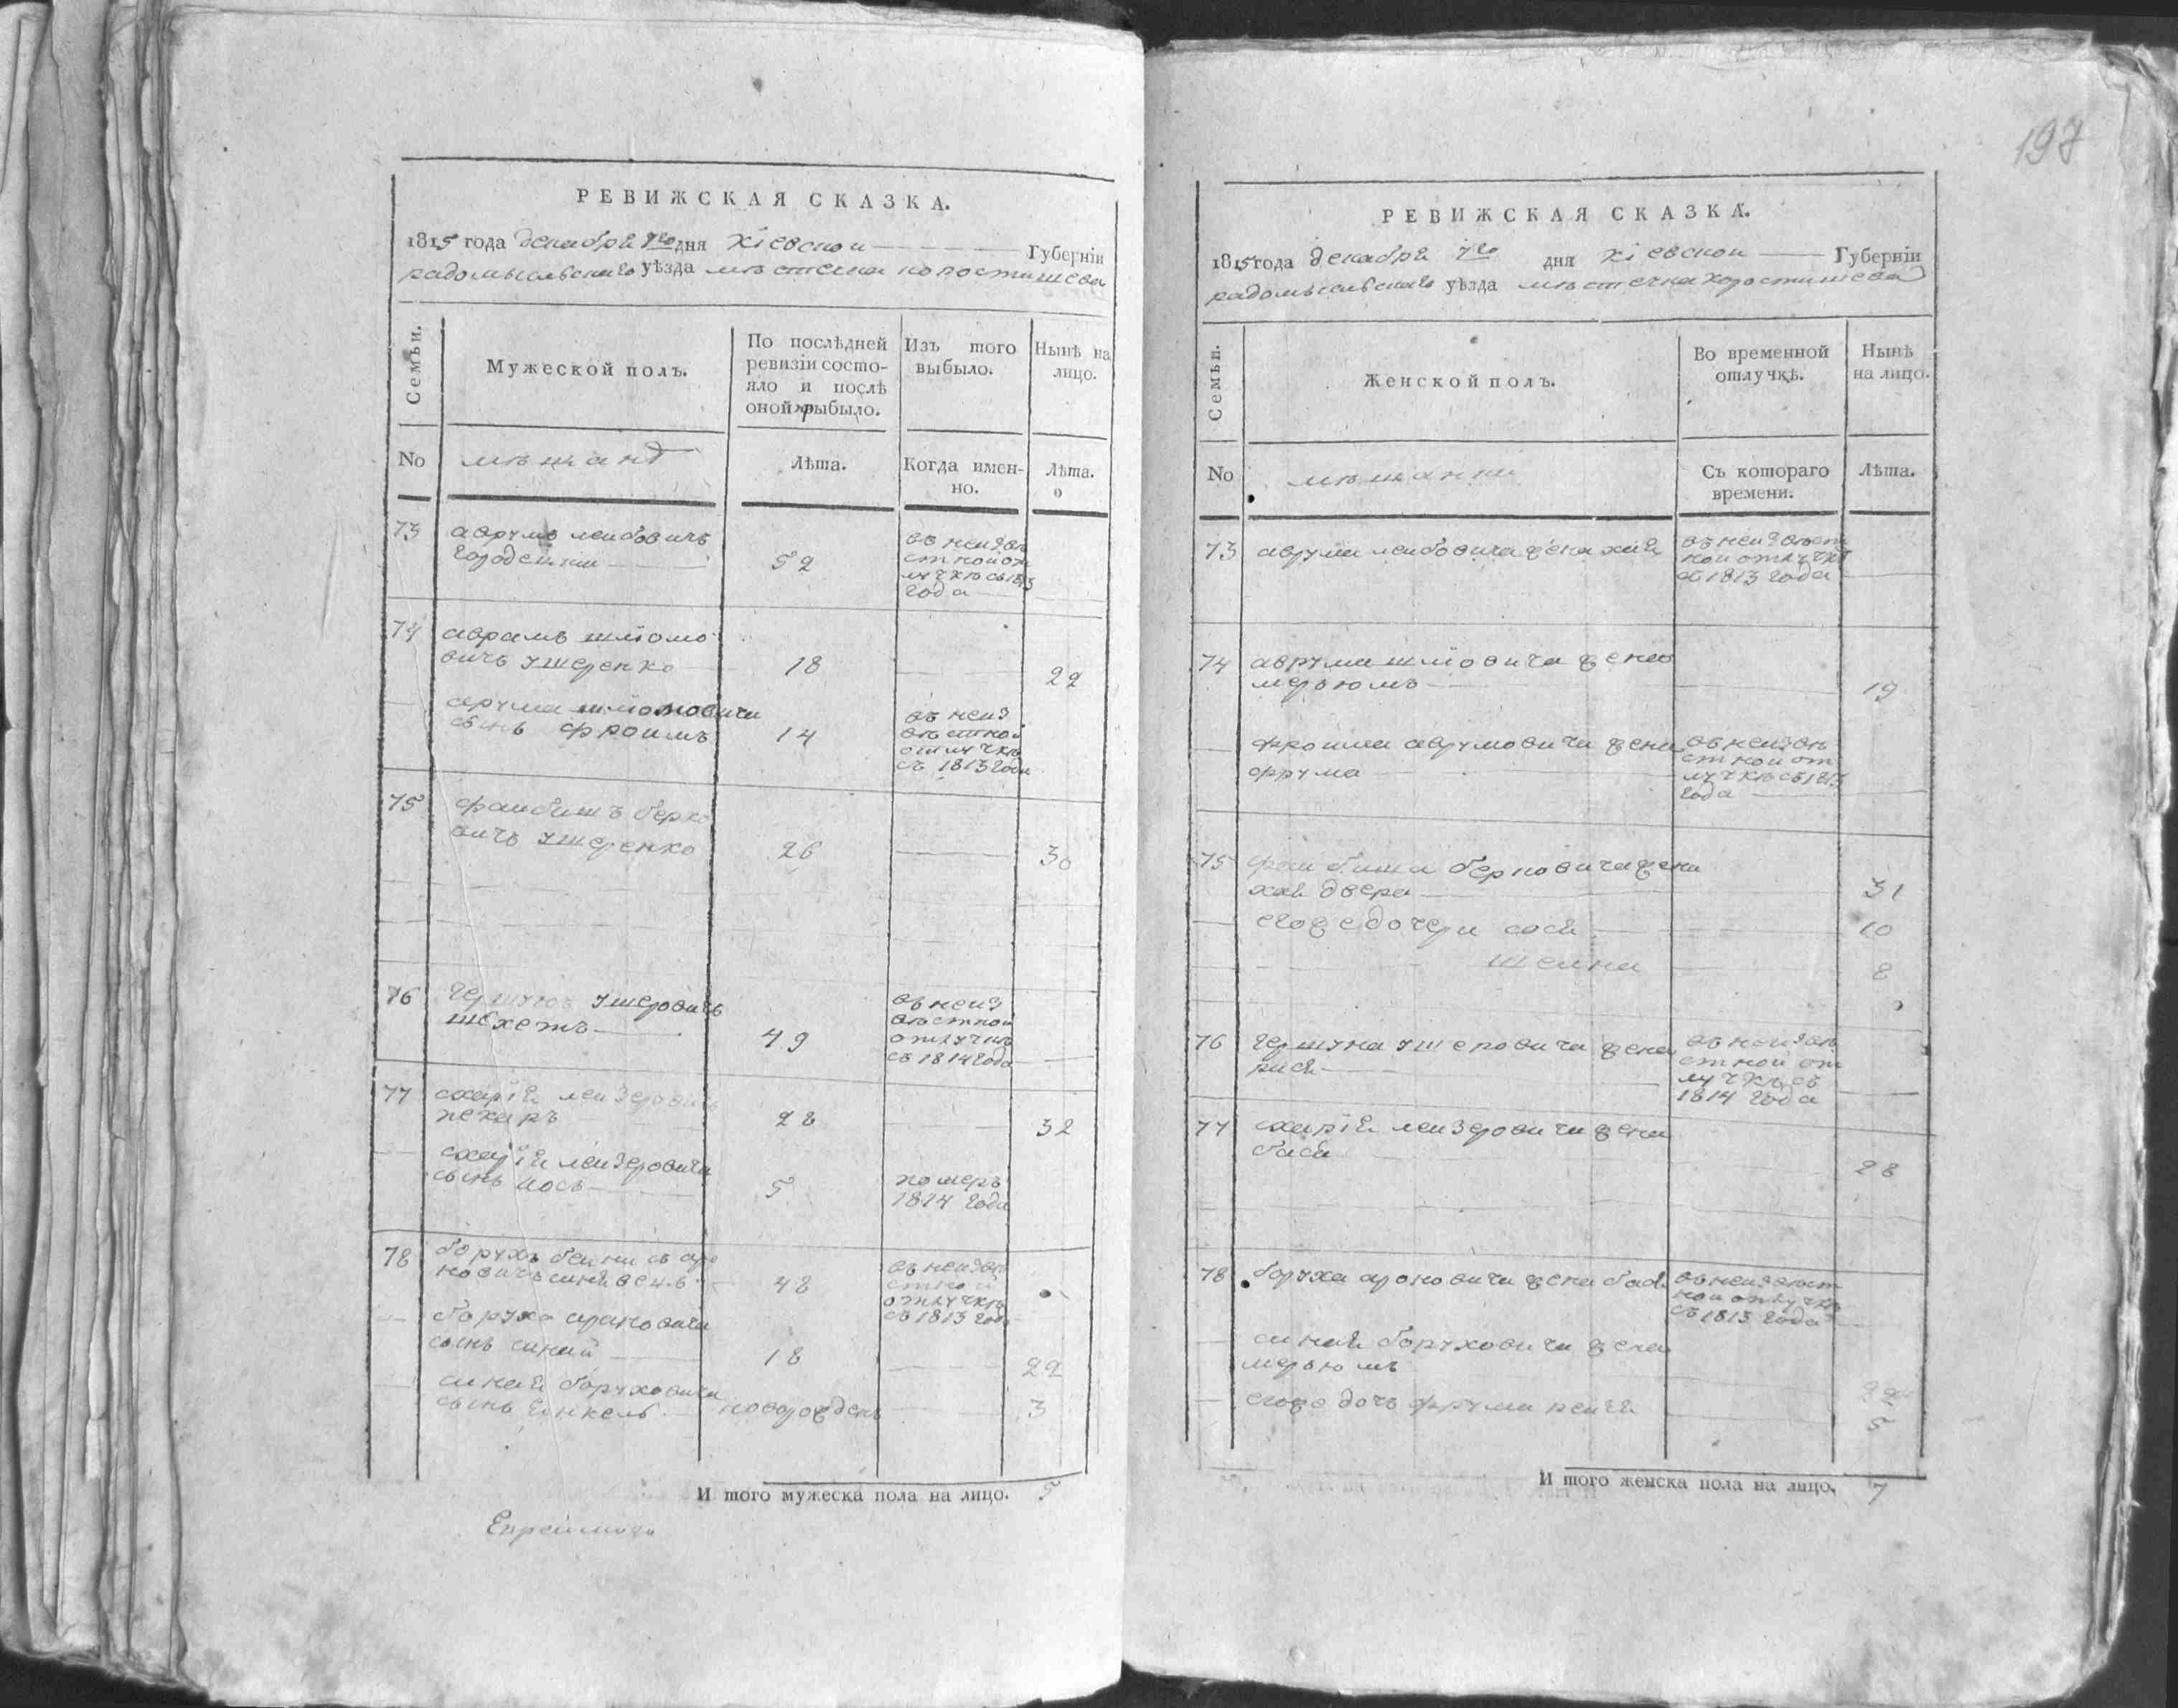 197
РЕВИЖСКАЯ СКАЗКА.
1815 года декабря 7го дня кіевской Губерніи
радомысльского уѣзда мѣстечка коростишева
Семьи.
Мужеской полъ.
По послѣдней
ревизіи состо-
яло и послѣ
оной прибыло.
Изъ того
выбыло.
Нынѣ на
лицо.
No
мѣщанъ
Лѣта.
Когда имен-
но.
Лѣта.
73 аврумъ лейбовичъ
городецкій 52
въ неизвѣ
стной от
лучкѣ съ 1813
года
74 аврамъ шліомо
вичъ ушеренко 18 22
аврума шліомовича
сынъ фроимъ 14
въ неиз
вѣстной
отлучкѣ
съ 1813 года
75 файбишъ берко
вичъ ушеренко 26 30
76 гершунъ ушеровичъ
шехетъ 49
въ неиз
вѣстной
отлучкѣ
съ 1814 года
77 схарія лейзеровичъ
пекаръ 28 32
схарія лейзеровича
сынъ іосъ 5
померъ
1814 года
78 борухъ
48
въ неизвѣ
стной
отлучкѣ
съ 1813 года
боруха ароновича
сынъ синай 18 22
синая боруховича
сынъ янкель новорожденъ 3
И того мужеска пола на лицо. 5
РЕВИЖСКАЯ СКАЗКА.
1815 года декабря 7го дня кіевской Губерніи
радомысльского уѣзда мѣстечка коростишева
Семьи.
Женской полъ.
Во временной
отлучкѣ.
Нынѣ
на лицо.
No
мѣщанки
Съ котораго
времени.
Лѣта.
73 аврума лейбовича жена хая
въ неизвѣст
ной отлучкѣ
съ 1813 года
74 аврума шліовича жена
меръюмъ 19
фроима аврумовича жена
фрума
въ неизвѣ
стной от
лучкѣ съ 1813
года
75 файбиша берковича жена
хая двера 31
егоже дочери сося 10
шейна 8
76 гершуна ушеровича жена
рися
въ неизвѣ
стной от
лучкѣ съ
1814 года
77 схарія лейзеровича жена
бася 28
78 боруха ароновича жена бася
въ неизвѣст
ной отлучкѣ
съ 1813 года
синая боруховича жена
меръюмъ 22
егоже дочь фрума рейзя 5
И того женска пола на лицо. 7